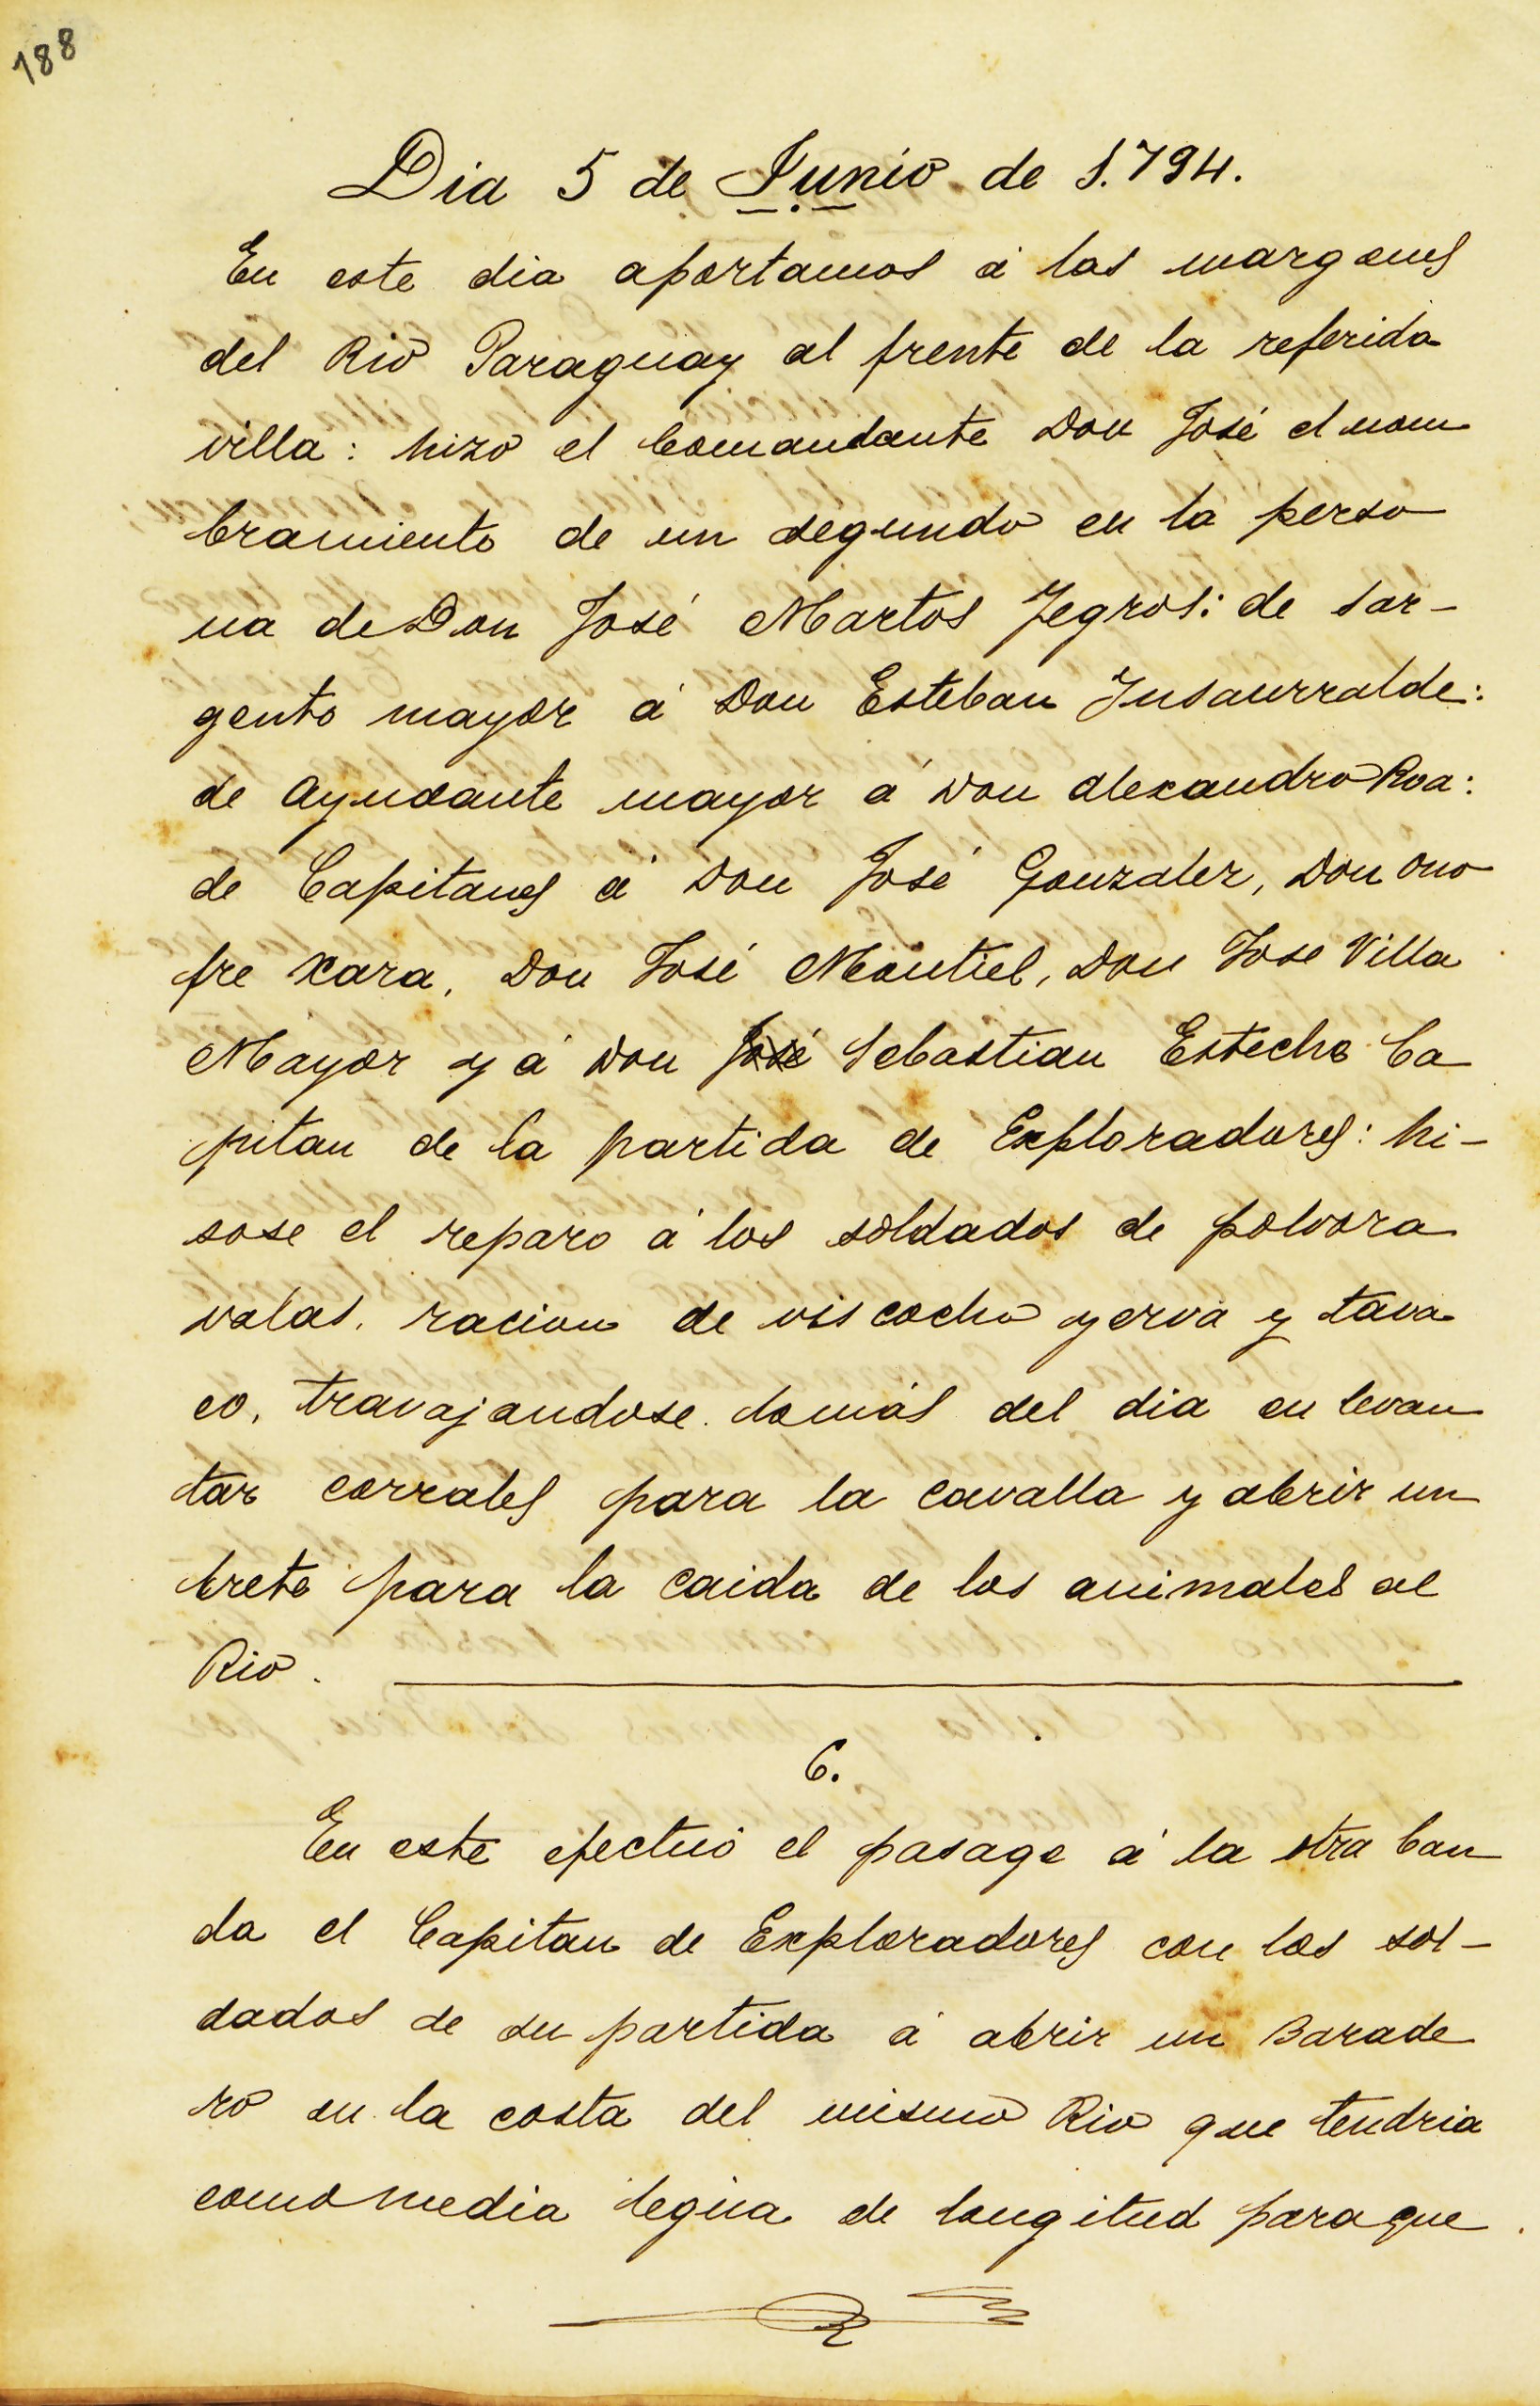 188
Dia 5 de Junio de 1.794.
En este dia aportamos á las margenes
del Rio Paraguay al frente de la referida
villa: hizo el Comandante Don José el nom
bramiento de un segundo en la perso
na de Don José Martos Yegros: de Sar-
gento mayor á Don Esteban Insaurralde:
de Ayudante mayor á Don Alexandro Roa:
de Capitanes á Don José Gonzalez, Don Ono
fre Xara, Don José Montiel, Don Jose Villa
Mayor y á Don José Sebastian Esteche Ca
pitan de la partida de Exploradores: hi-
sose el reparo á los soldados de polvora
valas, racion de viscocho yerva y tava
co, travajandose demás del dia en levan
tar corrales para la cavalla y abrir un
brete para la caida de los animales al
Rio.
6.
En este efectuó el pasage á la otra ban
da el Capitan de Exploradores con los sol-
dados de su partida á abrir un Barade
ro en la costa del mismo Rio que tendria
como media legua de longitud para que